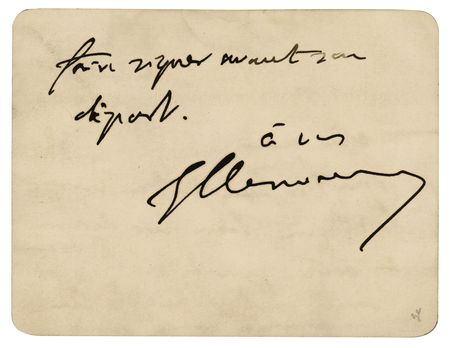 faire signer avant son
départ.
à vs
GClemenceau